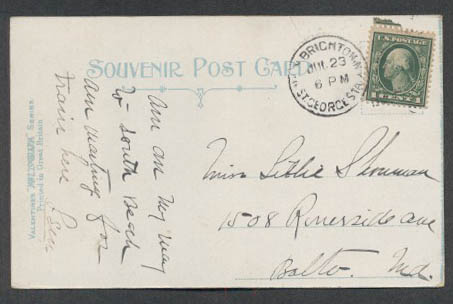 SOUVENIR POST CARD
BRIGHTON
JUL 23
6 PM
ST. GEORGE STA.
U.S. POSTAGE
1 CENT 1
am on my way
to South Beach
am waiting for
train here
Miss Lillie
1508 Riverside ave
Balto. Md.
VALENTINES' "PHOTOGRAPH" SERIES
Printed in Great Britain